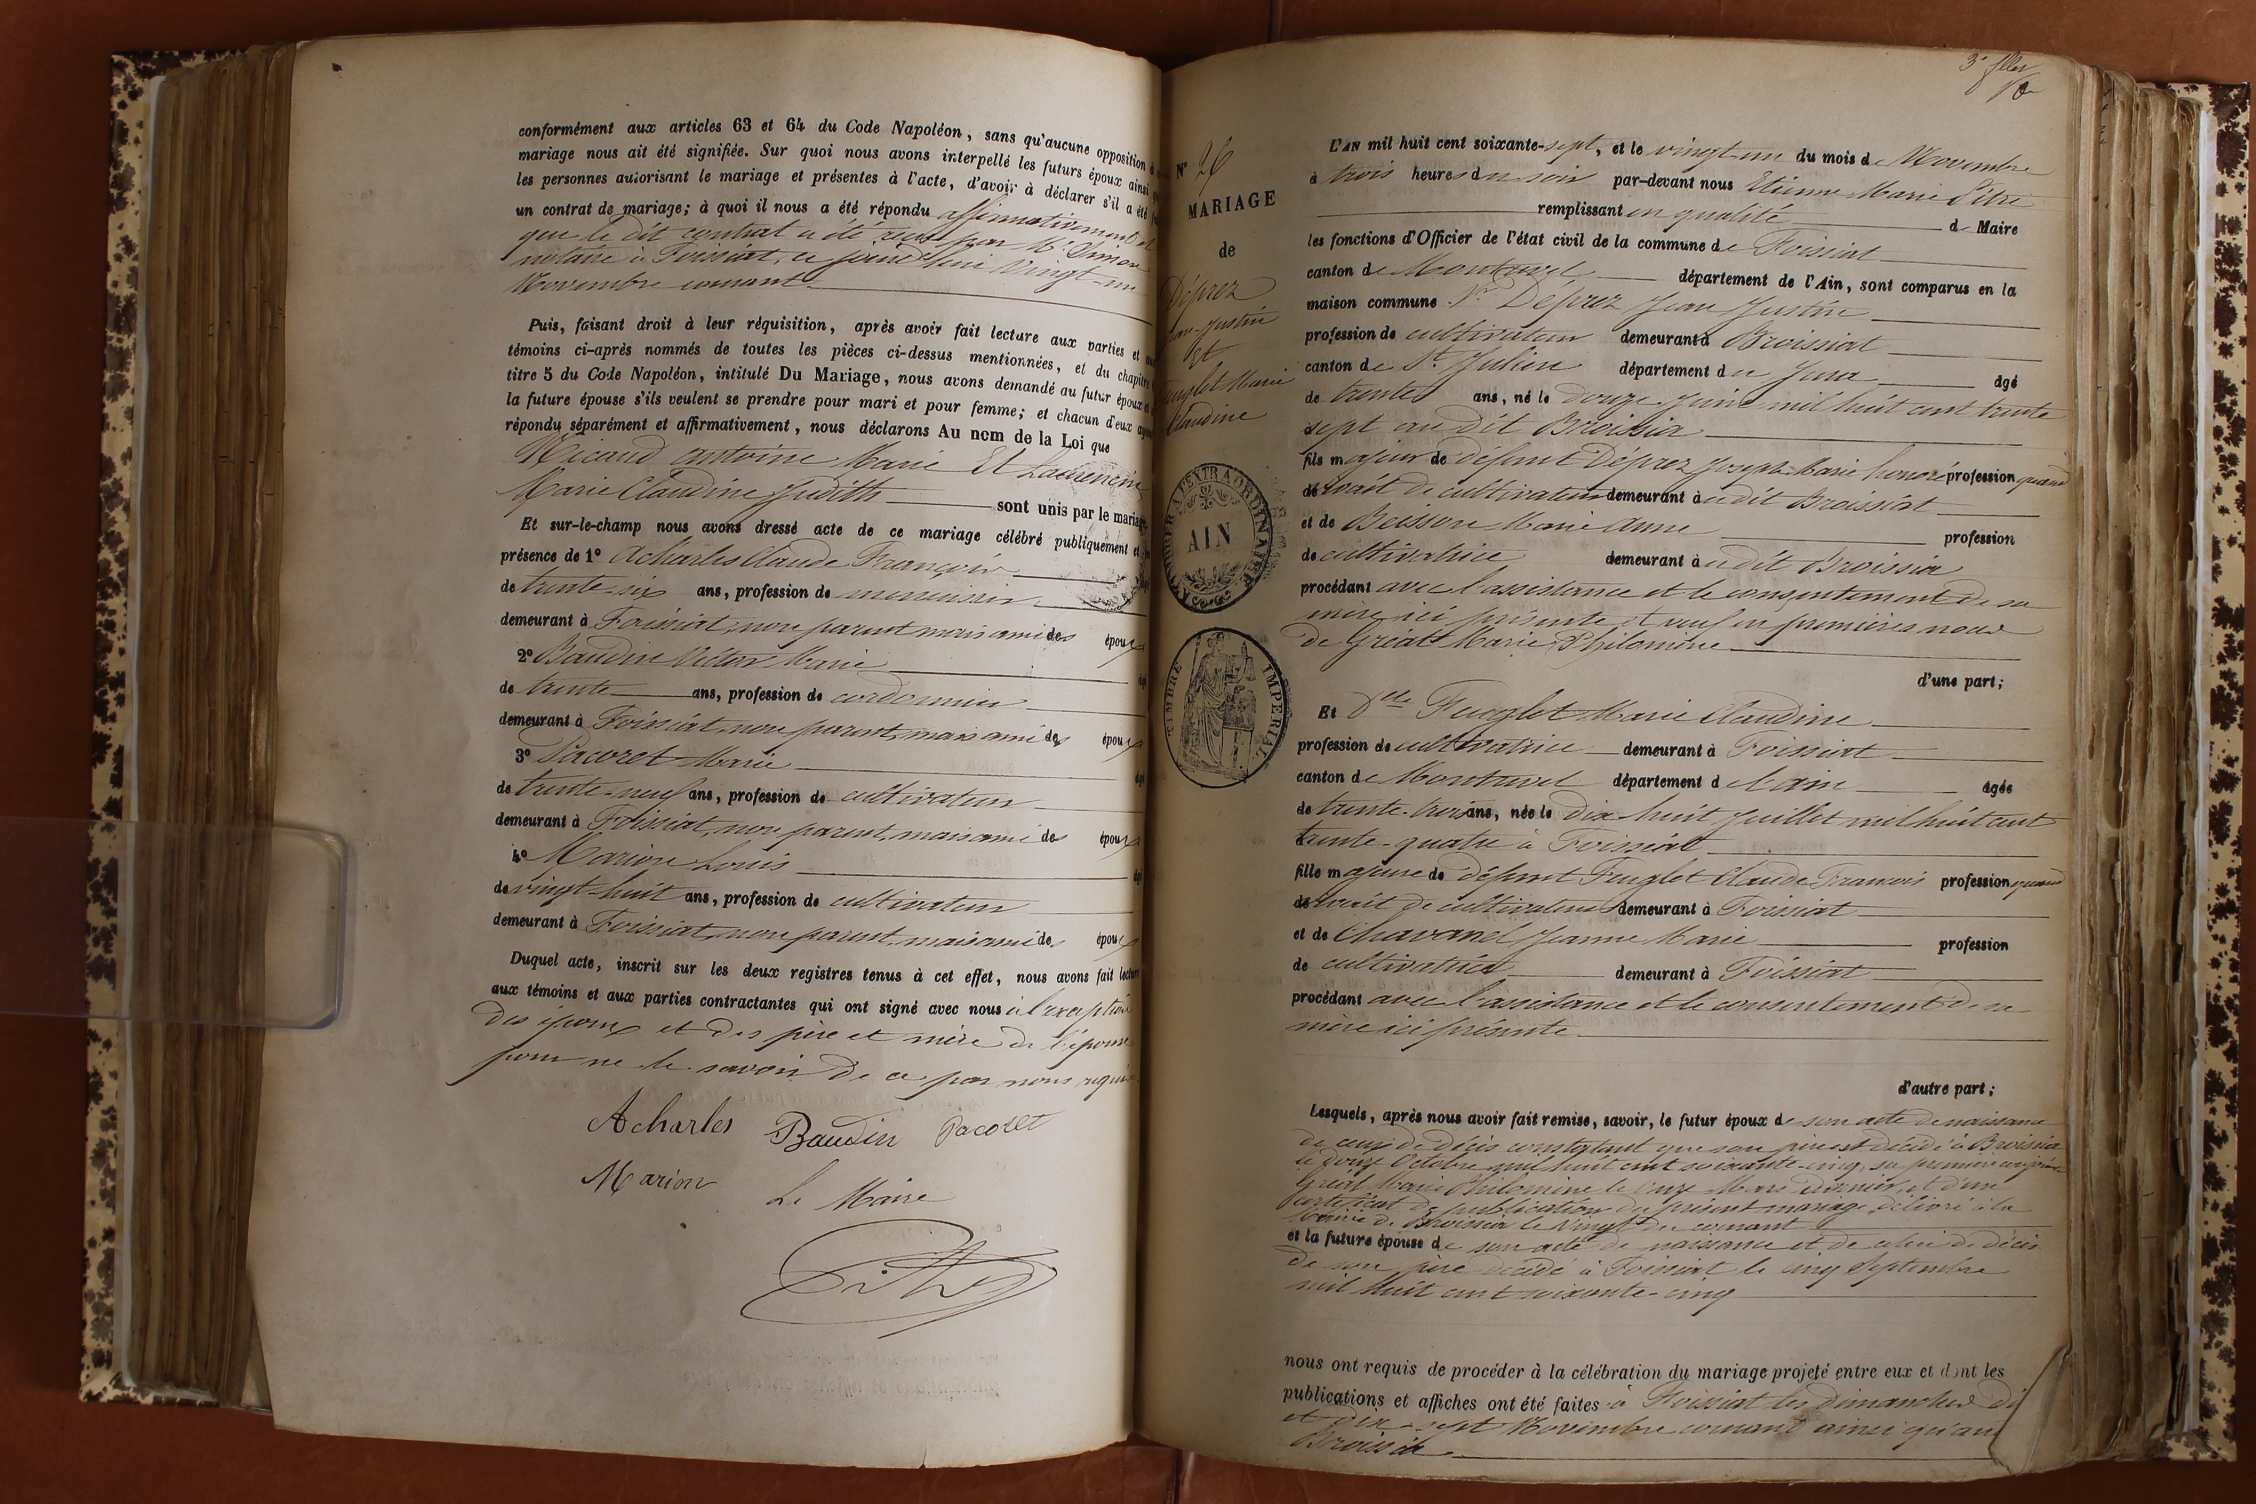 conformément aux articles 63 et 64 du Code Napoléon, sans qu'aucune opposition à
mariage nous ait été signifiée. Sur quoi nous avons interpellé les futurs époux ainsi
les personnes autorisant le mariage et présentes à l'acte, d'avoir à déclarer s'il a été
un contrat de mariage; à quoi il nous a été répondu affirmativement et
que le dit contrat a été reçu par Me Simon
notaire à Foissiat, ce jourd'hui vingt-un
Novembre courant
Puis, faisant droit à leur réquisition, après avoir fait lecture aux parties et aux
témoins ci-après nommés de toutes les pièces ci-dessus mentionnées, et du chapitre
titre 5 du Code Napoléon, intitulé Du Mariage, nous avons demandé au futur époux et
la future épouse s'ils veulent se prendre pour mari et pour femme; et chacun d'eux ayant
répondu séparément et affirmativement, nous déclarons Au nom de la Loi que
Micaud antoine Marie Et Laurencin
Marie Claudine Judith sont unis par le mariage.
Et sur-le-champ nous avons dressé acte de ce mariage célébré publiquement et
présence de 1° Acharles Claude François
de trente-six ans, profession de menuisier
demeurant à Foissiat, non parent mais ami des époux
2° Baudin Victor Marie
de trente ans, profession de cordonnier
demeurant à Foissiat, non parent, mais ami des époux
3° Pacoret Marie
de trente-neuf ans, profession de cultivateur
demeurant à Foissiat, non parent, mais ami des époux
4° Marion Louis
de vingt-huit ans, profession de cultivateur
demeurant à Foissiat, non parent, mais ami des époux
Duquel acte, inscrit sur les deux registres tenus à cet effet, nous avons fait lecture
aux témoins et aux parties contractantes qui ont signé avec nous à l'exception
des époux et des père et mère de l'épouse
pour ne le savoir de ce par nous requis
Acharles Baudin Pacoret
Marion Le Maire
Pitre
N° 26
MARIAGE
de
Déprez
Jean-Justin
Et
Feuglet Marie
Claudine
TIMBRE A L'EXTRAORDINAIRE
AIN
TIMBRE IMPERIAL
L'AN mil huit cent soixante-sept, et le vingt-un du mois de Novembre
à trois heures du soir par-devant nous Etienne Marie Pitre
remplissant en qualité de Maire
les fonctions d'Officier de l'état civil de la commune de Foissiat
canton de Montrevel département de l'Ain, sont comparus en la
maison commune Sr. Déprez Jean Justin
profession de cultivateur demeurant à Broissiat
canton de St. Julien département du Jura âgé
de trente ans, né le douze juin mil huit cent trente
sept au dit Broissia
fils majeur de défunt Déprez Joseph Marie honoré profession quand
vivait de cultivateur demeurant à au dit Broissiat
et de Beisson Marie anne profession
de cultivatrice demeurant à au dit Broissia
procédant avec l'assistance et le consentement de sa
mère ici présente et veuf en premières noces
de Gréat Marie Philomène
d'une part;
Et Dlle Feuglet Marie Claudine
profession de cultivatrice demeurant à Foissiat
canton de Montrevel département de l'ain âgée
de trente-trois ans, née le dix-huit Juillet mil huit cent
trente-quatre à Foissiat
fille majeure de défunt Feuglet Claude François profession quand
vivait de cultivateur demeurant à Foissiat
et de Chavanel Jeanne Marie profession
de cultivatrice demeurant à Foissiat
procédant avec l'assistance et le consentement de sa
mère ici présente
d'autre part;
Lesquels, après nous avoir fait remise, savoir, le futur époux de son acte de naissance
de ceux de décès constatant que son père est décédé à Broissia
le douze Octobre mil huit cent soixante-cinq, sa première
Gréat Marie Philomène le onze Mars dernier, et d'un
certificat de publication du présent mariage délivré à la
mairie de Broissia le vingt du courant
et la future épouse de son acte de naissance et de celui de décès
de son père décédé à Foissiat le cinq Septembre
mil huit cent soixante-cinq
nous ont requis de procéder à la célébration du mariage projeté entre eux et dont les
publications et affiches ont été faites à Foissiat les dimanches dix
et dix-sept Novembre courant ainsi qu'au
Broissia